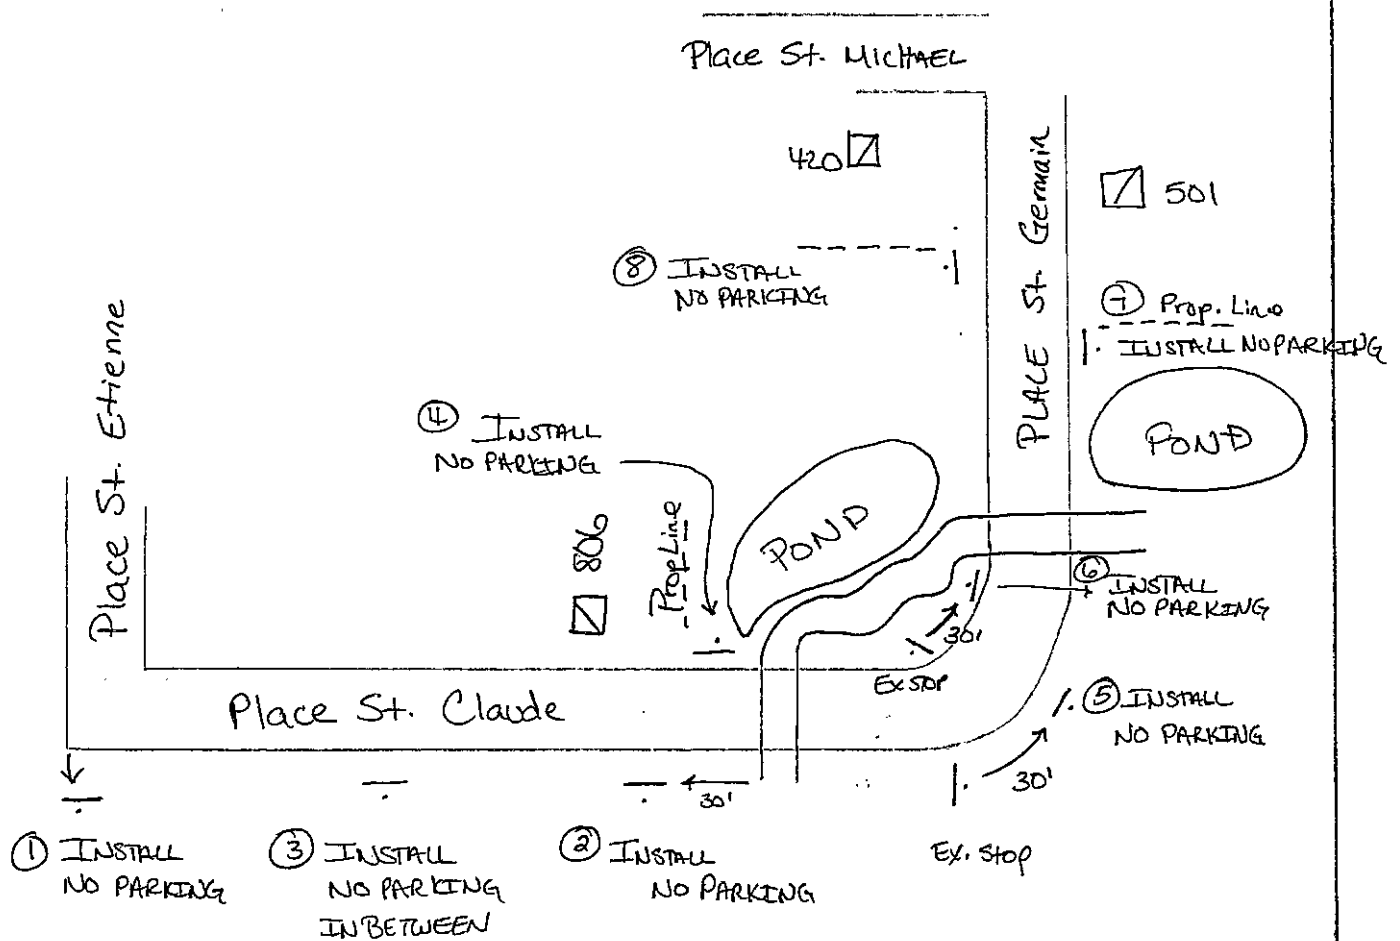 Place St. MICHAEL
420
PLACE St. Germain
501
⑧ INSTALL
NO PARKING
⑦ Prop. Line
INSTALL NO PARKING
Place St. Etienne
④ INSTALL
NO PARKING
POND
POND
806
Prop Line
⑥ INSTALL
NO PARKING
30'
EX STOP
Place St. Claude
⑤ INSTALL
NO PARKING
30'
30'
① INSTALL
NO PARKING
③ INSTALL
NO PARKING
IN BETWEEN
② INSTALL
NO PARKING
EX. Stop